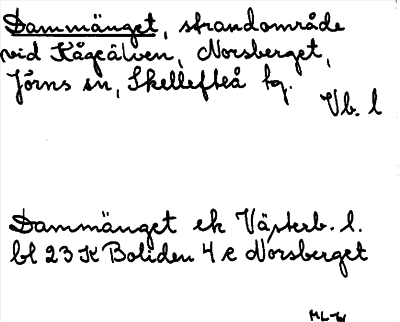 Dammänget, strandområde
vid Kågeälven, Norsberget,
Jörns sn, Skellefteå kg.
Vb. l
Dammänget ek Västerb. l.
bl 23 K Boliden 4 e Norsberget
ML-W